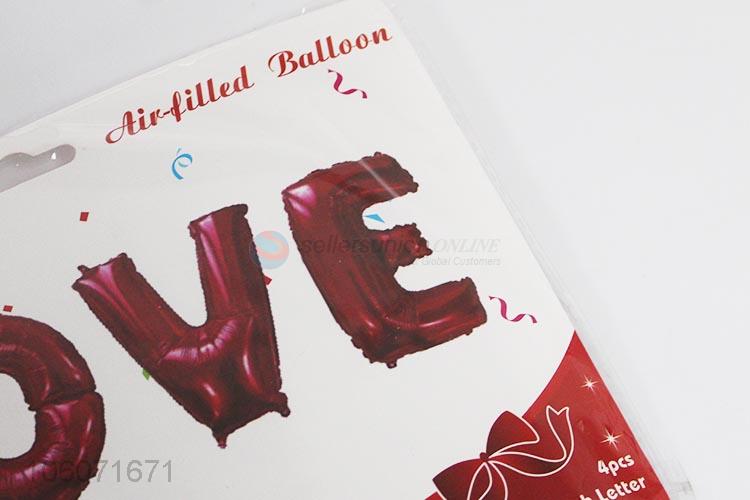 Air-filled Balloon
OVE
sellersunion ONLINE
Global Customers
4pcs
Letter
06071671